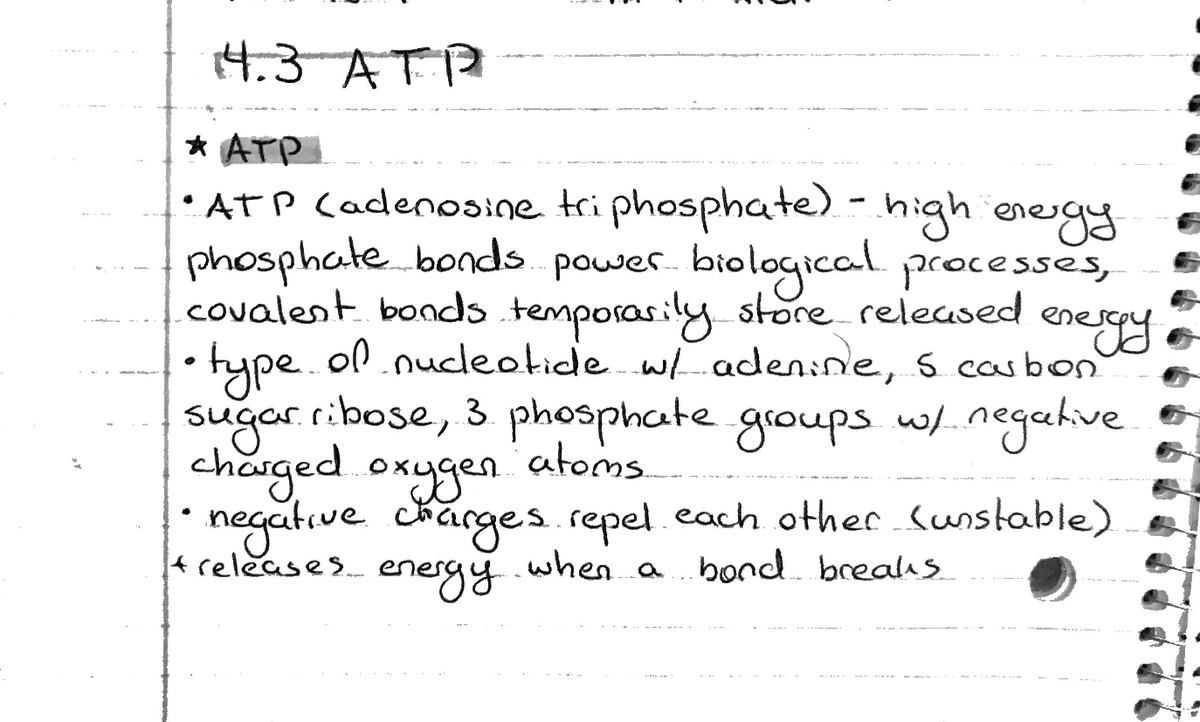 4.3 ATP
* ATP
• ATP (adenosine triphosphate) - high energy
phosphate bonds power biological processes,
covalent bonds temporarily store released energy
• type of nucleotide w/ adenine, 5 carbon
sugar ribose, 3 phosphate groups w/ negative
charged oxygen atoms
• negative charges repel each other (unstable)
+ releases energy when a bond breaks